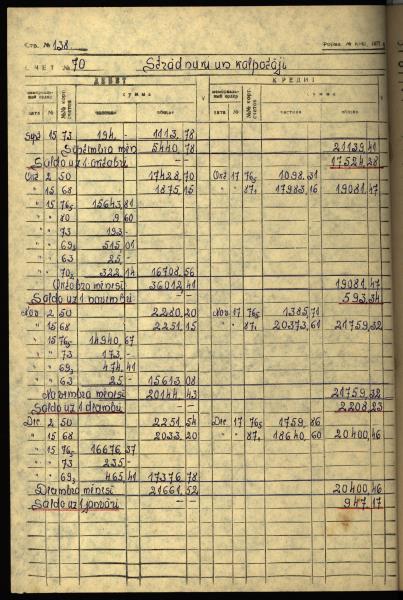 Стр. № 138.
Форма № К-10, 1971
СЧЕТ № 70 Strādnieku un kalpotāji
ДЕБЕТ КРЕДИТ
мемориальный ордер №№ корр. счетов сумма V мемориальный ордер №№ корр. счетов сумма
дата № частная общая дата № частная общая
Sept 15 73 194,- 1113,78
Septembra mēn 5440,78 21139,41
Saldo uz 1 oktobri -- 17524,28
Okt 2 50 17428,70 Okt 17 76₅ 1098,31
" 15 68 1875,15 " " 87₁ 17983,16 19081,47
" 15 76₅ 15643,81
" " 80 9,60
" " 73 193,-
" " 69₃ 515,01
" " 63 25,-
" " 70₂ 322,14 16708,56
Oktobra mēnesī 36012,41 19081,47
Saldo uz 1 novembri -- 593,34
Nov 2 50 2280,20 Nov 17 76₅ 1385,71
" 15 68 2251,15 " " 87₁ 20373,61 21759,32
" 15 76₅ 14940,67
" " 73 173,-
" " 69₃ 474,41
" " 63 25,- 15613,08
Novembra mēnesī 20144,43 21759,32
Saldo uz 1 decembri -- 2208,23
Dec 2 50 2251,54 Dec 17 76₅ 1759,86
" 15 68 2033,20 " " 87₁ 18640,60 20400,46
" 15 76₅ 16676,37
" " 73 235,-
" " 69₃ 465,41 17376,78
Decembra mēnesī 21661,52 20400,46
Saldo uz 1 janvāri -- 947,17